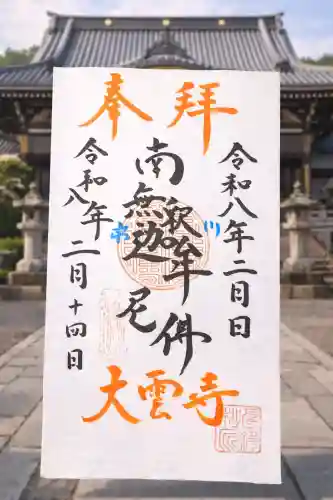 奉拝
令和八年二月日
南無釈迦牟尼佛
川
令和八年二月十四日
大雲寺